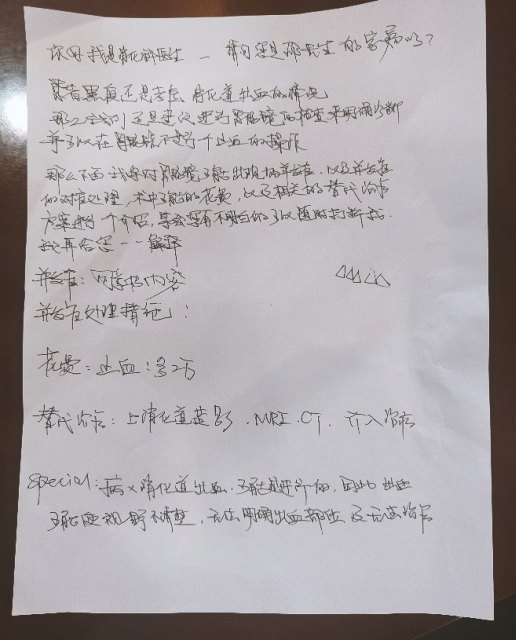 你好我是消化科医生 — 请问您是 医生的家属吗?
患者 目前还是考虑 消化道出血的情况
那么 我们还是建议进行胃肠镜的检查来明确诊断
并可以在胃肠镜下进行个止血的操作
那么下面我将对胃肠镜可能出现的并发症,以及并发症
的对应处理,术中可能的花费,以及相关的替代治疗
方案进行个介绍,若您有不明白的可以随时打断我.
我再给您一一解释
并发症:同 内容
并发症处理措施:
花费:止血:多2万
替代治疗:上消化道造影.MRI.CT.介入治疗
special:病×消化道出血.可能是 的,因此 出血
可能 视野不清楚,无法明确出血部位 及无法治疗